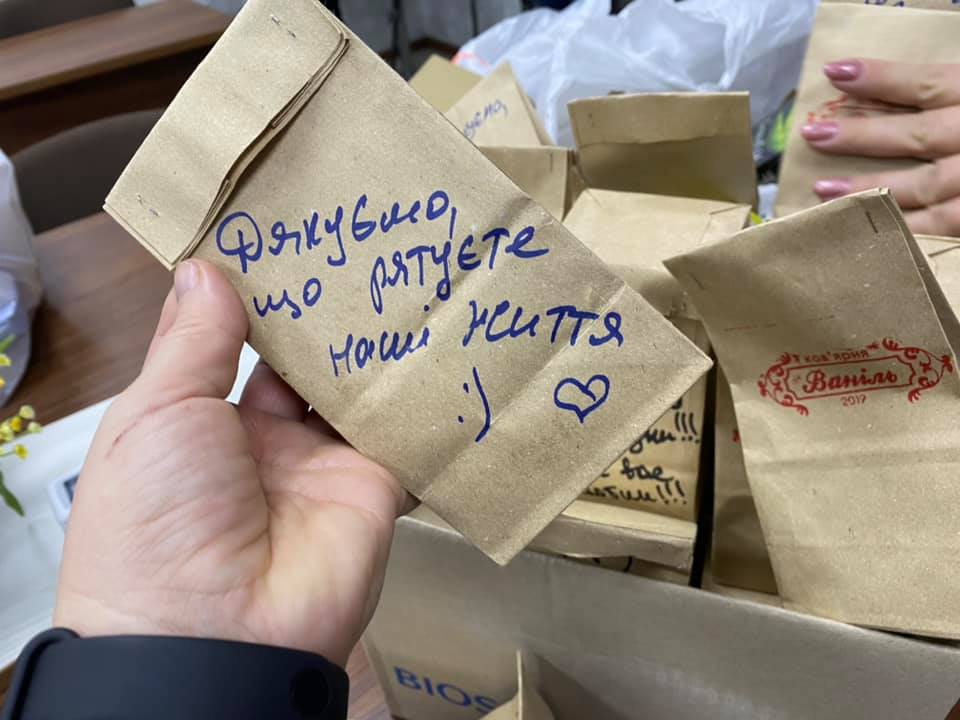 Дякуємо,
що рятуєте
наші життя
:)
кав'ярня
Ваніль
2017
вас
BIOS